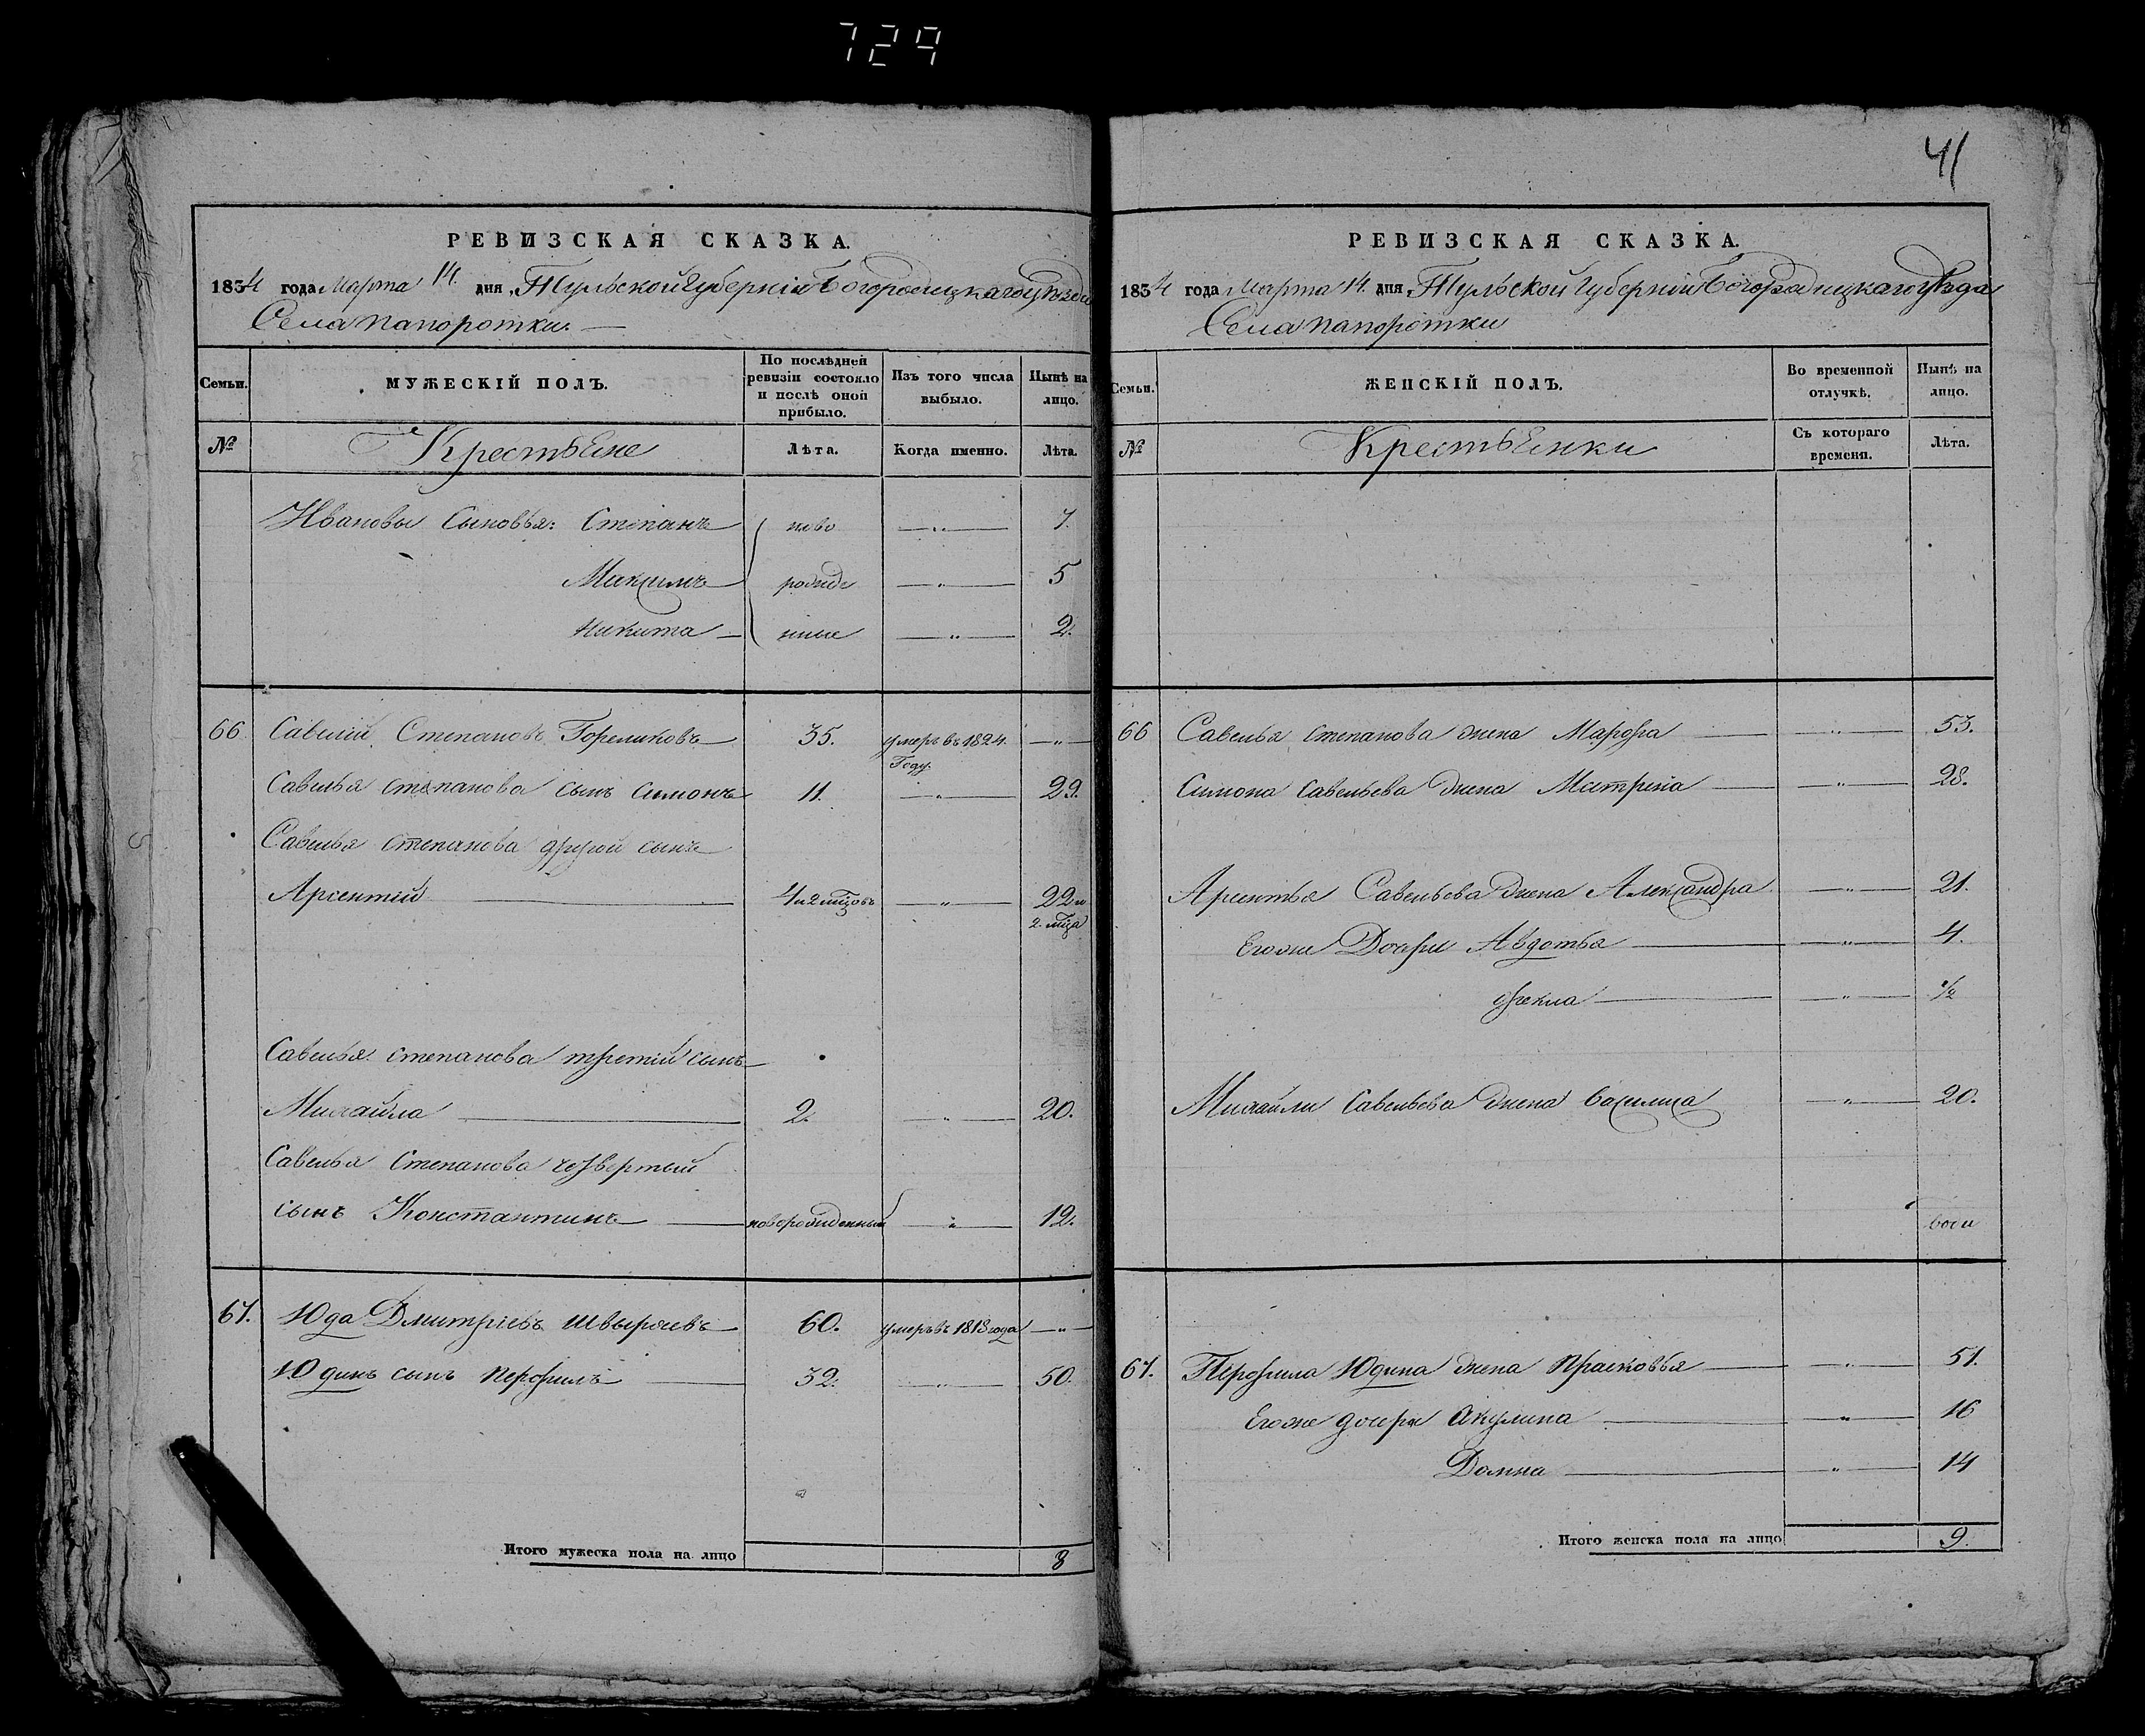 729
41
РЕВИЗСКАЯ СКАЗКА.
1834 года Марта 14. дня, Тульской Губерніи Богородицкаго уѣзда
Села папоротки.
Семьи.
МУЖЕСКІЙ ПОЛЪ.
По послѣдней ревизіи состояло и послѣ оной прибыло.
Изъ того числа выбыло.
Нынѣ на лицо.
№
Крестьене
Лѣта.
Когда именно.
Лѣта.
Ивановы Сыновья: Степанъ ново — „ — 7.
Максимъ рожде — „ — 5
Никита — нные — „ — 2.
66 Савелій Степановъ Гореликовъ 35. умеръ въ 1824. Году. — „ —
Савелья степанова сынъ Симонъ 11. — „ — 29.
Савелья степанова другой сынъ
Арсентій 4 и 2 мцовъ — „ — 22 и
2. мца
Савелья степанова третій сынъ
Михайла 2. — „ — 20.
Савелья Степанова четвертый
сынъ Константинъ новорожденный — „ — 12.
67. Юда Дмитріевъ швыряевъ 60. умеръ въ 1818 года — „ —
Юдинъ сынъ Перфилъ 32. — „ — 50.
Итого мужеска пола на лицо 8
РЕВИЗСКАЯ СКАЗКА.
1834 года Марта 14. дня, Тульской Губерніи Богородицкаго уѣзда
Села папоротки
Семьи.
ЖЕНСКІЙ ПОЛЪ.
Во временной отлучкѣ.
Нынѣ на лицо.
№
Крестьенки
Съ котораго времени.
Лѣта.
66 Савелья степанова жена Марфа — „ — 53.
Симона Савельева жена Матрена — „ — 28.
Арсентья Савельева жена Александра — „ — 21.
Егоже Дочери Авдотья — „ — 4.
фекла — „ — ½
Михайли Савельева жена василиса — „ — 20.
67. Перфила Юдина жена Прасковья — „ — 51.
Егоже дочери Акулина — „ — 16
Домна — „ — 14
Итого женска пола на лицо 9.